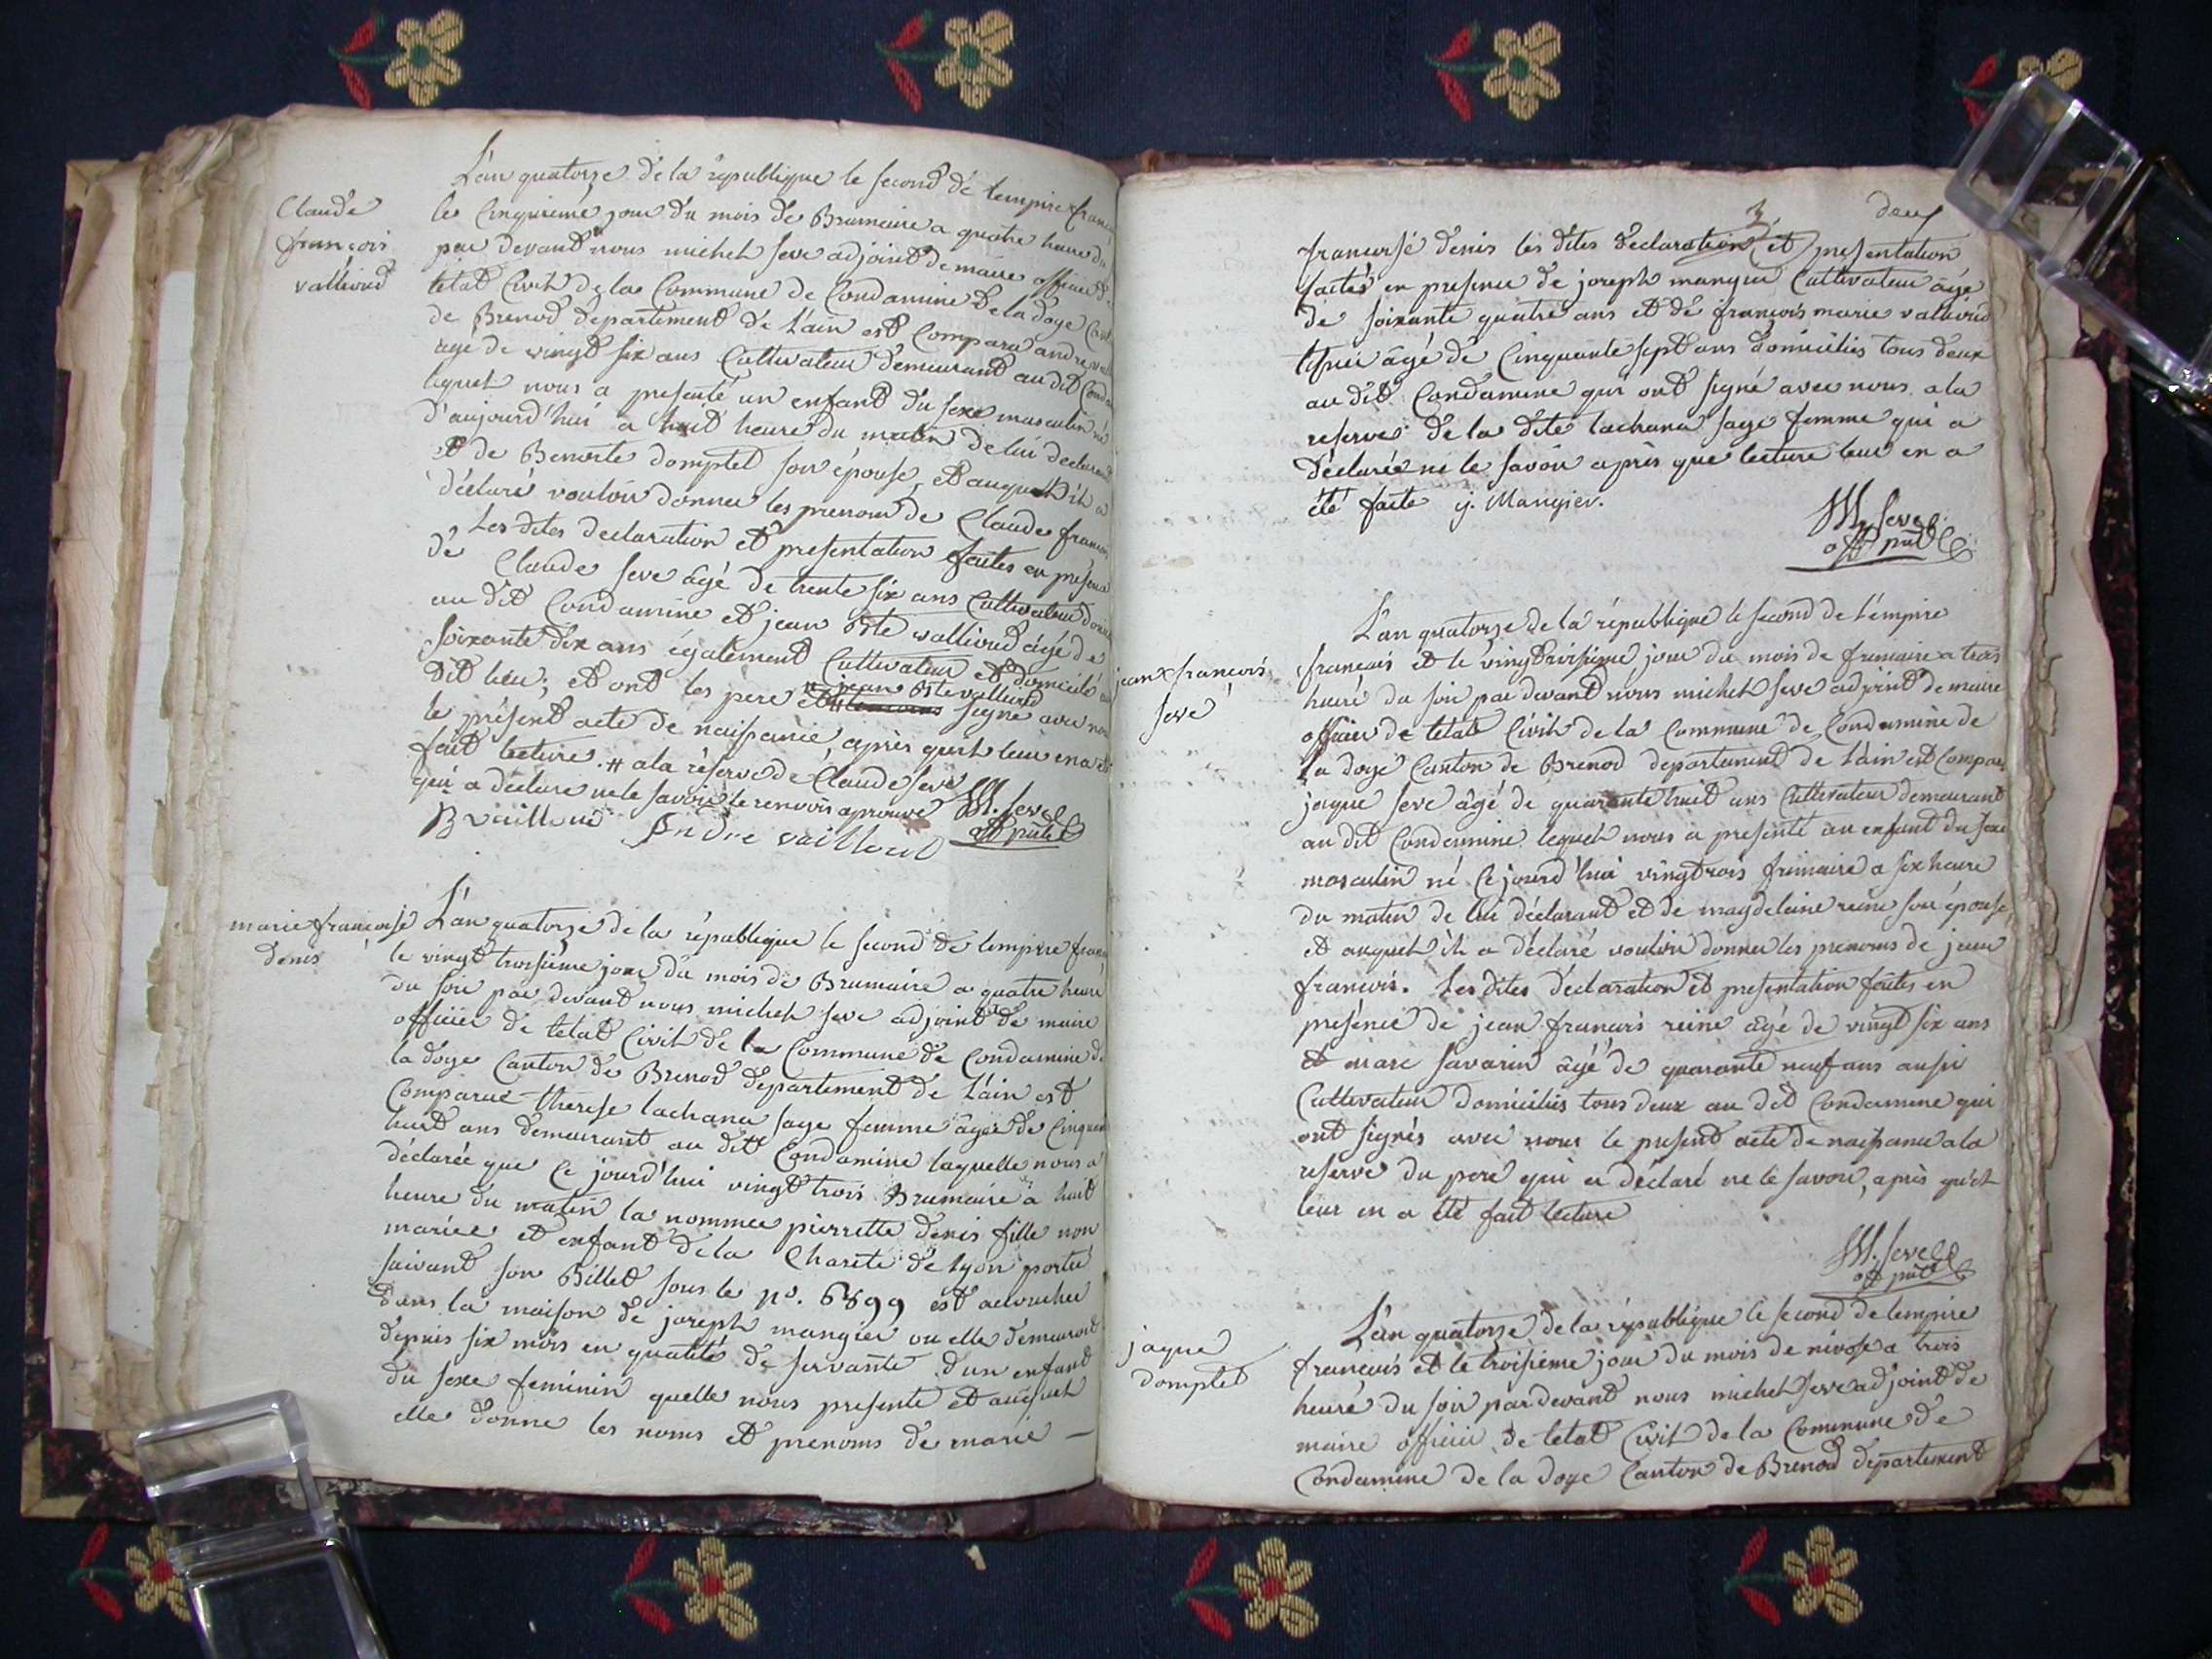 Claude
françois
vallioud
L'an quatorze de la republique le second de lempire
le Cinquieme jour du mois de Brumaire a quatre heure du
par devant nous michel seve adjoint de maire officier de
létat Civil de la Commune de Condamine de la doye
de Brenod departement de L'ain est Comparu andre
agé de vingt six ans Cultivateur demeurant au dit
lequel nous a presenté un enfant du sexe masculin né
d'aujourd'hui a huit heure du matin de lui declarant
et de Benoite domptet son épouse, et auquel il a
déclaré vouloir donner les prenoms de Claude
Les dites declaration et presentation faites en presence
de Claude seve âgé de trente six ans Cultivateur
au dit Condamine et jean Bte vallioud âgé de
soixante dix ans également Cultivateur et domicilé au
dit lieu; et ont les pere et jean Bte vallioud signé avec nous
le présent acte de naissance, après qu'il leur en a
fait lecture. # a la réserve de Claude seve
qui a declare ne le savoir le renvois aprouvé M. Seve
B vailloud André vailloud off públ
marie françoise
denis
L'an quatorze de la république le second de lempire
le vingt troisiéme jour du mois de Brumaire a quatre heure
du soir par devant nous michel seve adjoint de maire
officier de létat Civil de la Commune de Condamine de
la doye Canton de Brenod departement de L'ain est
Comparue therese lachana sage femme âgée de
huit ans demeurant au dit Condamine laquelle nous a
déclarée que Ce jourd'hui vingt trois Brumaire a huit
heure du matin la nommée pierrette denis fille non
mariée et enfant de la Charité de lyon porté
suivant son Billet sous le no. 6899 est acouchée
dans la maison de joseph mangier ou elle demeurant
depuis six mois en qualité de servante d'un enfant
du sexe feminin quelle nous presente et auquel
elle donne les noms et prenoms de marie —
3 deux
francoise denis les dites declaration et presentation
faites en presence de joseph mangier Cultivateur âgé
de soixante quatre ans et de françois marie vallioud
âgé de Cinquante sept ans domiciliés tous deux
au dit Condamine qui ont signé avec nous a la
reserve de la dite lachana sage femme qui a
déclarée ne le savoir après que lecture leur en a
été faite j. Mangier.
M. Seve
off públ
jean françois
seve
L'an quatorze de la république le second de L'empire
français et le vingtroisiéme jour du mois de frimaire a trois
heure du soir par devant nous michel seve adjoint de maire
officier de létat Civil de la Commune de Condamine de
la doye Canton de Brenod departement de L'ain est Comparu
jaque seve âgé de quarante huit ans Cultivateur demeurant
au dit Condamine lequel nous a presenté un enfant du sexe
masculin né Cejourd'hui vingtrois frimaire a six heure
du matin de lui déclarant et de magdeleine reine son épouse,
et auquel il a déclaré vouloir donner les prenoms de jean
francois. Les dites déclaration et presentation faites en
présence de jean francois reine âgé de vingt six ans
et marc savarin âgé de quarante neuf ans aussi
Cultivateur domiciliés tous deux au dit Condamine qui
ont signés avec nous le present acte de naissance a la
reserve du pere qui a déclaré ne le savoir, après qu'il
leur en a été fait lecture
M. Seve
off públ
jaque
domptet
L'an quatorze de la république le second de lempire
français et le troisième jour du mois de nivose a trois
heure du soir par devant nous michel seve adjoint de
maire officier de létat Civil de la Commune de
Condamine de la doye Canton de Brenod département